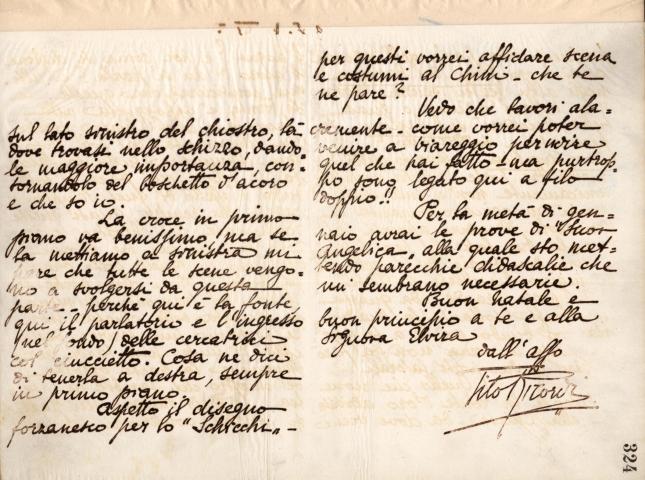 sul lato sinistro del chiostro, là
dove trovasi nello schizzo, dando=
le maggiore importanza, con=
tornandolo del boschetto d'acoro
e che so io.
La croce in primo
piano va benissimo, ma se
la mettiamo a sinistra mi
pare che tutte le scene vengo=
no a svolgersi da questa
parte - perchè qui è la fonte
qui il parlatorio e l'ingresso
nel fondo, delle cercatrici
col ciuccietto. Cosa ne dici
di tenerla a destra, sempre
in primo piano.
Aspetto il disegno
forzanesco per lo "Schicchi" -
per questi vorrei affidare scena
e costumi al Chini - che te
ne pare?
Vedo che lavori ala=
cremente - come vorrei poter
venire a Viareggio per udire
quel che hai fatto - ma purtrop=
po sono legato qui a filo
doppio!!
Per la metà di gen=
naio avrai le prove di "Suor
Angelica" alla quale sto met=
tendo parecchie didascalie che
mi sembrano necessarie.
Buon natale e
buon principio a te e alla
signora Elvira
dall' affo
Tito Ricordi
324